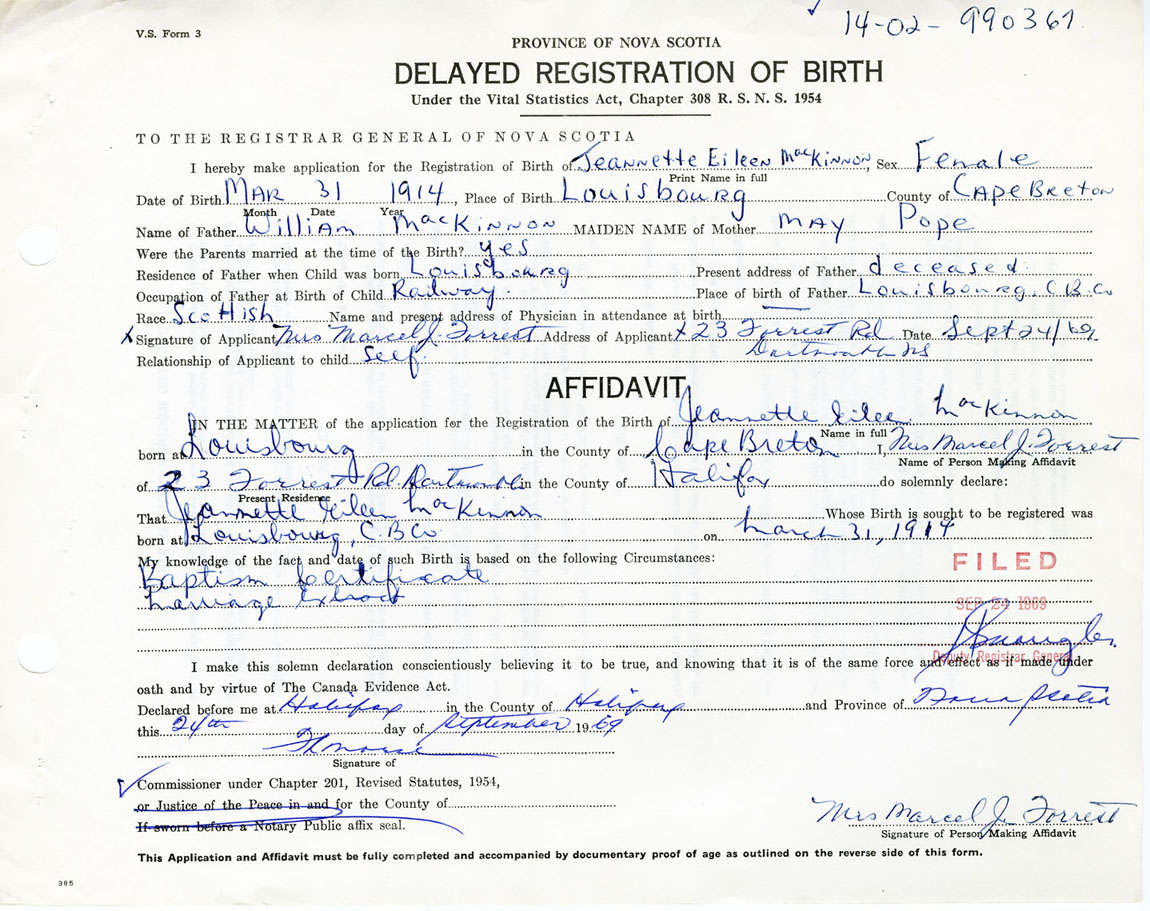 14-02-990367
V.S. Form 3
PROVINCE OF NOVA SCOTIA
DELAYED REGISTRATION OF BIRTH
Under the Vital Statistics Act, Chapter 308 R. S. N. S. 1954
TO THE REGISTRAR GENERAL OF NOVA SCOTIA
I hereby make application for the Registration of Birth of Jeannette Eileen MacKinnon, Sex Female
Print Name in full
Date of Birth MAR 31 1914, Place of Birth Louisbourg County of Cape Breton
Month Date Year
Name of Father William MacKinnon MAIDEN NAME of Mother MAY Pope
Were the Parents married at the time of the Birth? yes
Residence of Father when Child was born Louisbourg Present address of Father deceased
Occupation of Father at Birth of Child Railway. Place of birth of Father Louisbourg, C.B.Co
Race Scottish Name and present address of Physician in attendance at birth —
X Signature of Applicant Mrs Marcel J. Forrest Address of Applicant X 23 Forrest Rd Date Sept 24/69
Dartmouth NS
Relationship of Applicant to child self.
AFFIDAVIT
IN THE MATTER of the application for the Registration of the Birth of Jeannette Eileen MacKinnon
Name in full
born at Louisbourg in the County of Cape Breton I, Mrs Marcel J. Forrest
Name of Person Making Affidavit
of 23 Forrest Rd. Dartmouth in the County of Halifax do solemnly declare:
Present Residence
That Jeannette Eileen MacKinnon Whose Birth is sought to be registered was
born at Louisbourg, C.B Co on March 31, 1914
My knowledge of the fact and date of such Birth is based on the following Circumstances:
Baptism Certificate
Marriage Extract
FILED
SEP 24 1969
Deputy Registrar General
I make this solemn declaration conscientiously believing it to be true, and knowing that it is of the same force and effect as if made under
oath and by virtue of The Canada Evidence Act.
Declared before me at Halifax in the County of Halifax and Province of Nova Scotia
this 24th day of September 19 69
Signature of
Commissioner under Chapter 201, Revised Statutes, 1954,
or Justice of the Peace in and for the County of
If sworn before a Notary Public affix seal.
Mrs Marcel J. Forrest
Signature of Person Making Affidavit
This Application and Affidavit must be fully completed and accompanied by documentary proof of age as outlined on the reverse side of this form.
385